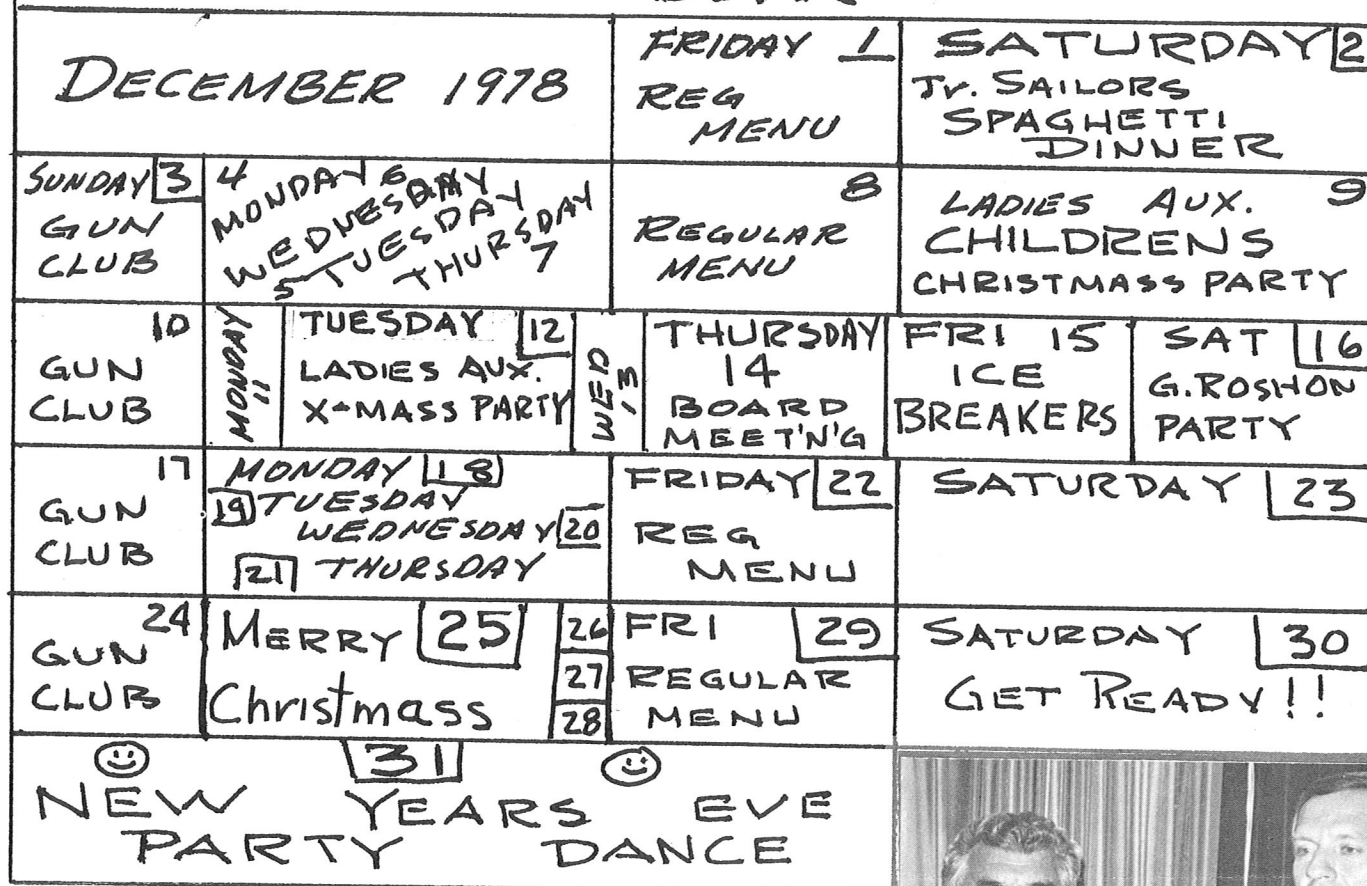 DECEMBER 1978
FRIDAY 1
REG
MENU
SATURDAY 2
Jr. SAILORS
SPAGHETTI
DINNER
SUNDAY 3
GUN
CLUB
4
MONDAY 6
WEDNESDAY
5 TUESDAY
THURSDAY
7
8
REGULAR
MENU
9
LADIES AUX.
CHILDRENS
CHRISTMASS PARTY
10
GUN
CLUB
MONDAY
11
TUESDAY 12
LADIES AUX.
X-MASS PARTY
WED
13
THURSDAY
14
BOARD
MEET'N'G
FRI 15
ICE
BREAKERS
SAT 16
G. ROSHON
PARTY
17
GUN
CLUB
MONDAY 18
19 TUESDAY
WEDNESDAY 20
21 THURSDAY
FRIDAY 22
REG
MENU
SATURDAY 23
24
GUN
CLUB
MERRY 25
Christmass
26
27
28
FRI 29
REGULAR
MENU
SATURDAY 30
GET READY!!
31
NEW YEARS EVE
PARTY DANCE